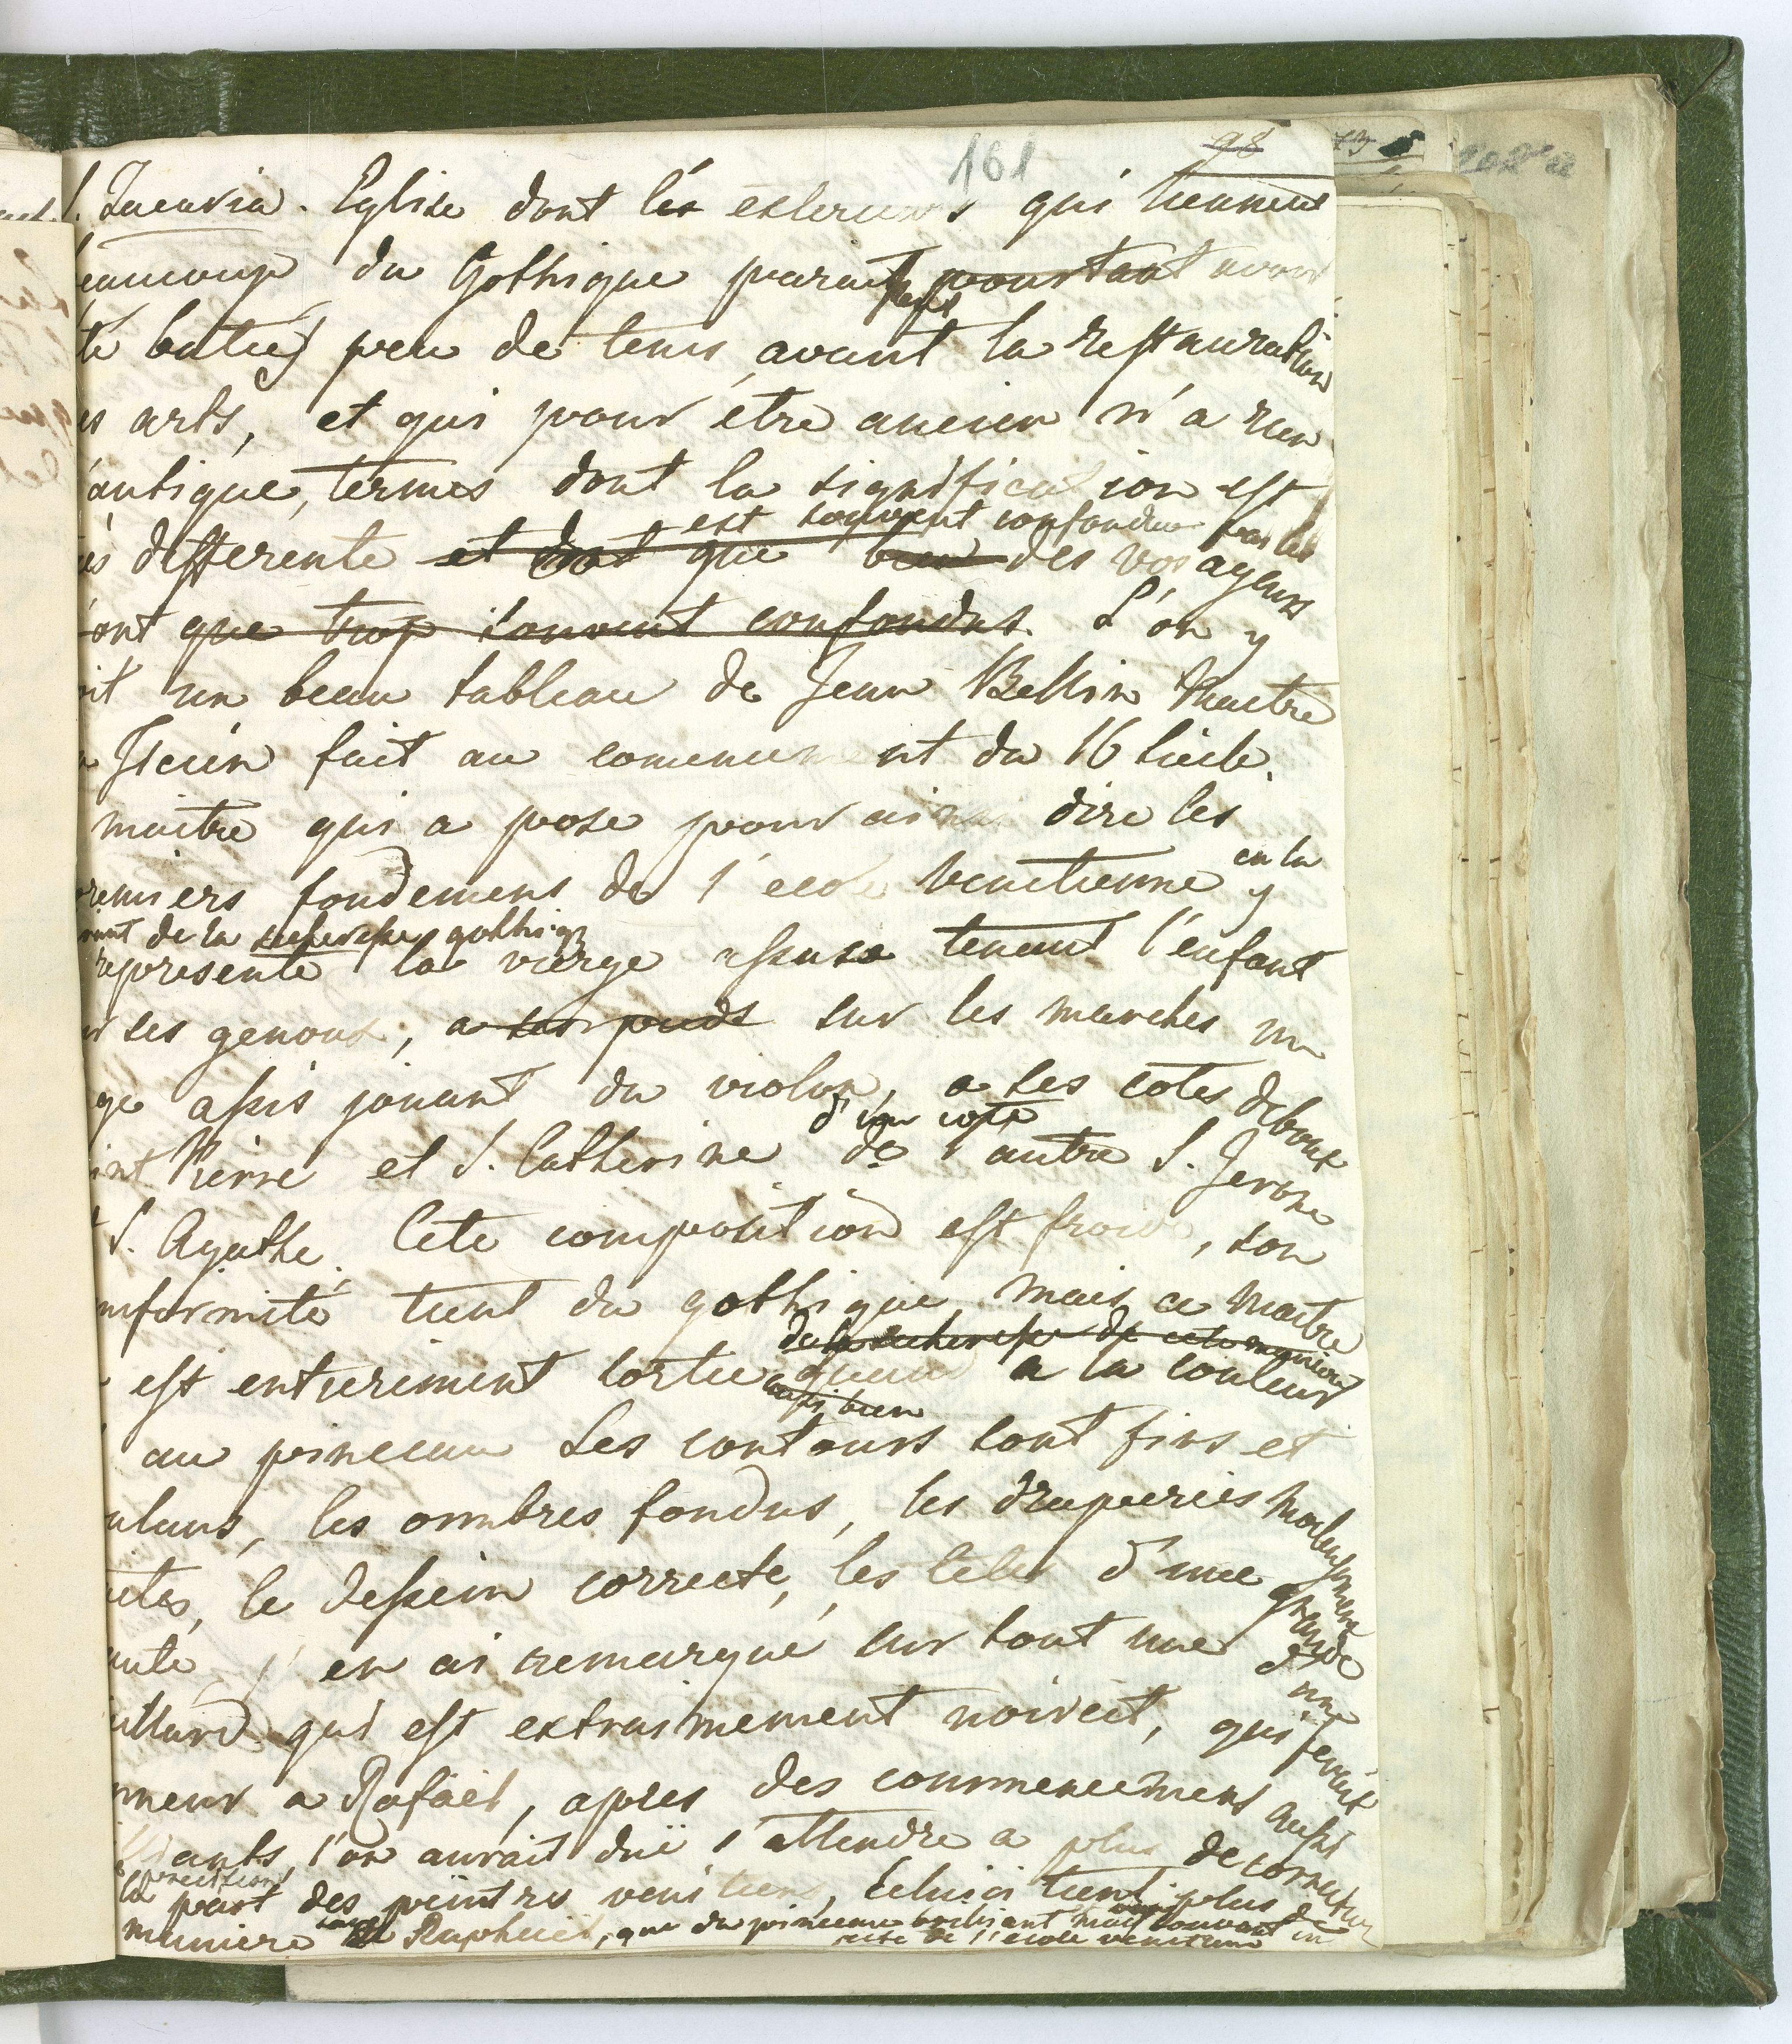 161
98
S. Zacaria. Eglise dont les exterieurs qui tiennent
eaucoup du Gothique parait pourtant avoir
té batie peu de tems avant la restauration
es arts, et qui pour être ancien n'a rien
'antique, termes dont la signification est
est souvent confondue par les
ès differente et dont que bien des voyageurs
'ont que trop souvent confondus. L'on y
oit un beau tableau de Jean Bellin Maitre
fait au commencement du 16 siecle.
maitre qui a posé pour ainsi dire les
premiers fondemens de l'ecole venetienne en la
de la secheresse gothique
represente la vierge assise tenant l'enfant
ur ses genoux, a ses pieds sur les marches un
ge assis jouant du violon, a ses cotés debout
d'un coté
int Pierre et S. Catherine de l'autre S. Jerome
S. Agathe. Cete composition est froide, son
niformité tient du gothique, mais ce Maitre
de la secheresse de cete maniere
est entierement sortie quand a la couleur
aussi bien
au pinceau Les contours sont fins et
ulans, les ombres fondus, les drapperies moelleusement
etés, le dessein correcte, les tetes d'une grande
auté, j'en ai remarqué sur tout une d'un
eillard qui est extraimement noirçit, qui ferait
nneur a Rafäel, apres des commencemens aussi
ants, l'on aurait dué s'attendre a plus de correction
la part des peintres venitiens, Celuici tient plus de
maniere de Raphael, que du pinceau mais souvent in
de l'ecole venitienne